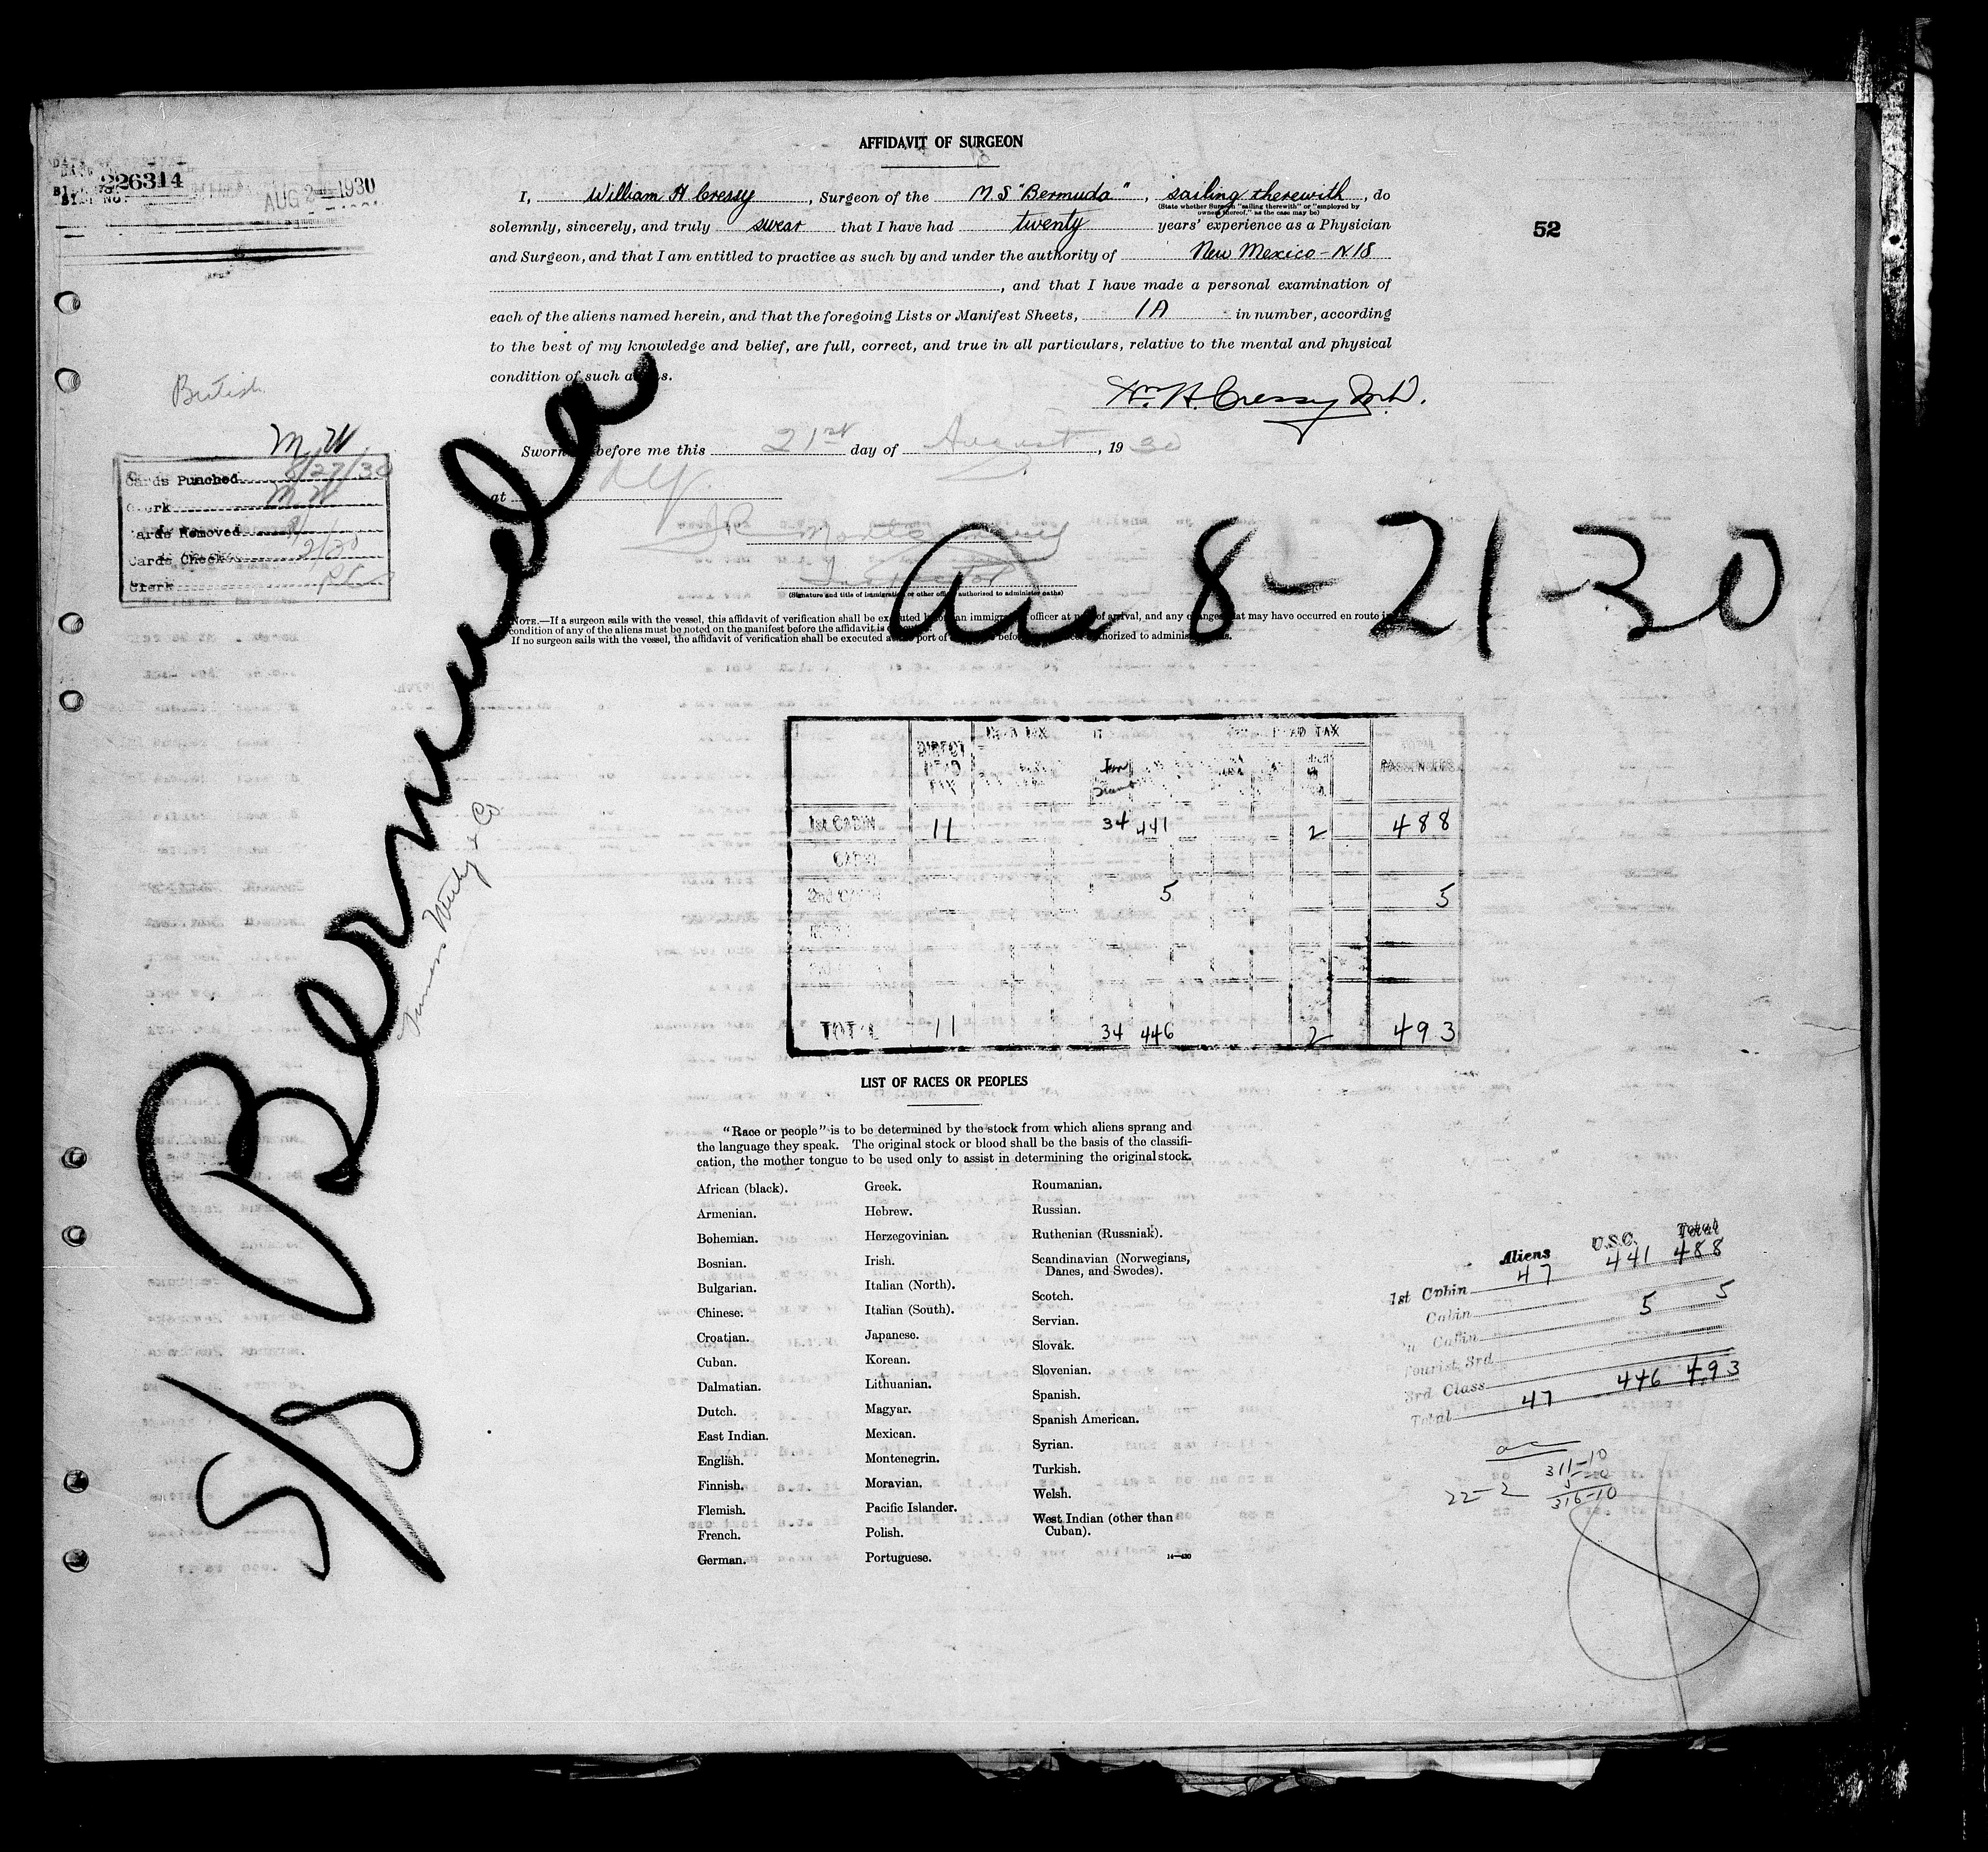 AFFIDAVIT OF SURGEON
226314
AUG 2 1930
I, William H Cressy, Surgeon of the M.S "Bermuda", sailing therewith, do
(State whether Surgeon "sailing therewith" or "employed by
owners thereof," as the case may be)
solemnly, sincerely, and truly swear that I have had twenty years' experience as a Physician
52
and Surgeon, and that I am entitled to practice as such by and under the authority of New Mexico - N.18
, and that I have made a personal examination of
each of the aliens named herein, and that the foregoing Lists or Manifest Sheets, 1A in number, according
to the best of my knowledge and belief, are full, correct, and true in all particulars, relative to the mental and physical
condition of such a s.
Wm. H. Cressy M.D.
British
Sworn before me this 21st day of August, 1930
at N.Y.
Inspector
(Signature and title of immigration or other officer authorized to administer oaths)
M.W.
Cards Punched 8/27/30
Clerk M.W
Cards Removed
Cards Checked
Clerk
S/S Bermuda
Furness Withy & Co
Arr 8-21-30
NOTE.—If a surgeon sails with the vessel, this affidavit of verification shall be executed before an immigration officer at port of arrival, and any changes that may have occurred en route i
condition of any of the aliens must be noted on the manifest before the affidavit is
If no surgeon sails with the vessel, the affidavit of verification shall be executed at the port of before authorized to administer oaths.
DIRECT HEAD TAX HEAD TAX TOTAL PASSENGERS
1st CABIN 11 34 441 2 488
CABIN
2nd CABIN 5 5
TOTAL 11 34 446 2 493
LIST OF RACES OR PEOPLES
"Race or people" is to be determined by the stock from which aliens sprang and
the language they speak. The original stock or blood shall be the basis of the classifi-
cation, the mother tongue to be used only to assist in determining the original stock.
African (black).
Armenian.
Bohemian.
Bosnian.
Bulgarian.
Chinese.
Croatian.
Cuban.
Dalmatian.
Dutch.
East Indian.
English.
Finnish.
Flemish.
French.
German.
Greek.
Hebrew.
Herzegovinian.
Irish.
Italian (North).
Italian (South).
Japanese.
Korean.
Lithuanian.
Magyar.
Mexican.
Montenegrin.
Moravian.
Pacific Islander.
Polish.
Portuguese.
Roumanian.
Russian.
Ruthenian (Russniak).
Scandinavian (Norwegians,
Danes, and Swedes).
Scotch.
Servian.
Slovak.
Slovenian.
Spanish.
Spanish American.
Syrian.
Turkish.
Welsh.
West Indian (other than
Cuban).
14—430
Aliens U.S.C. Total
1st Cabin 47 441 488
Cabin 5 5
Cabin
Tourist 3rd
3rd Class
Total 47 446 493
311-10
5-0
22-2 316-10